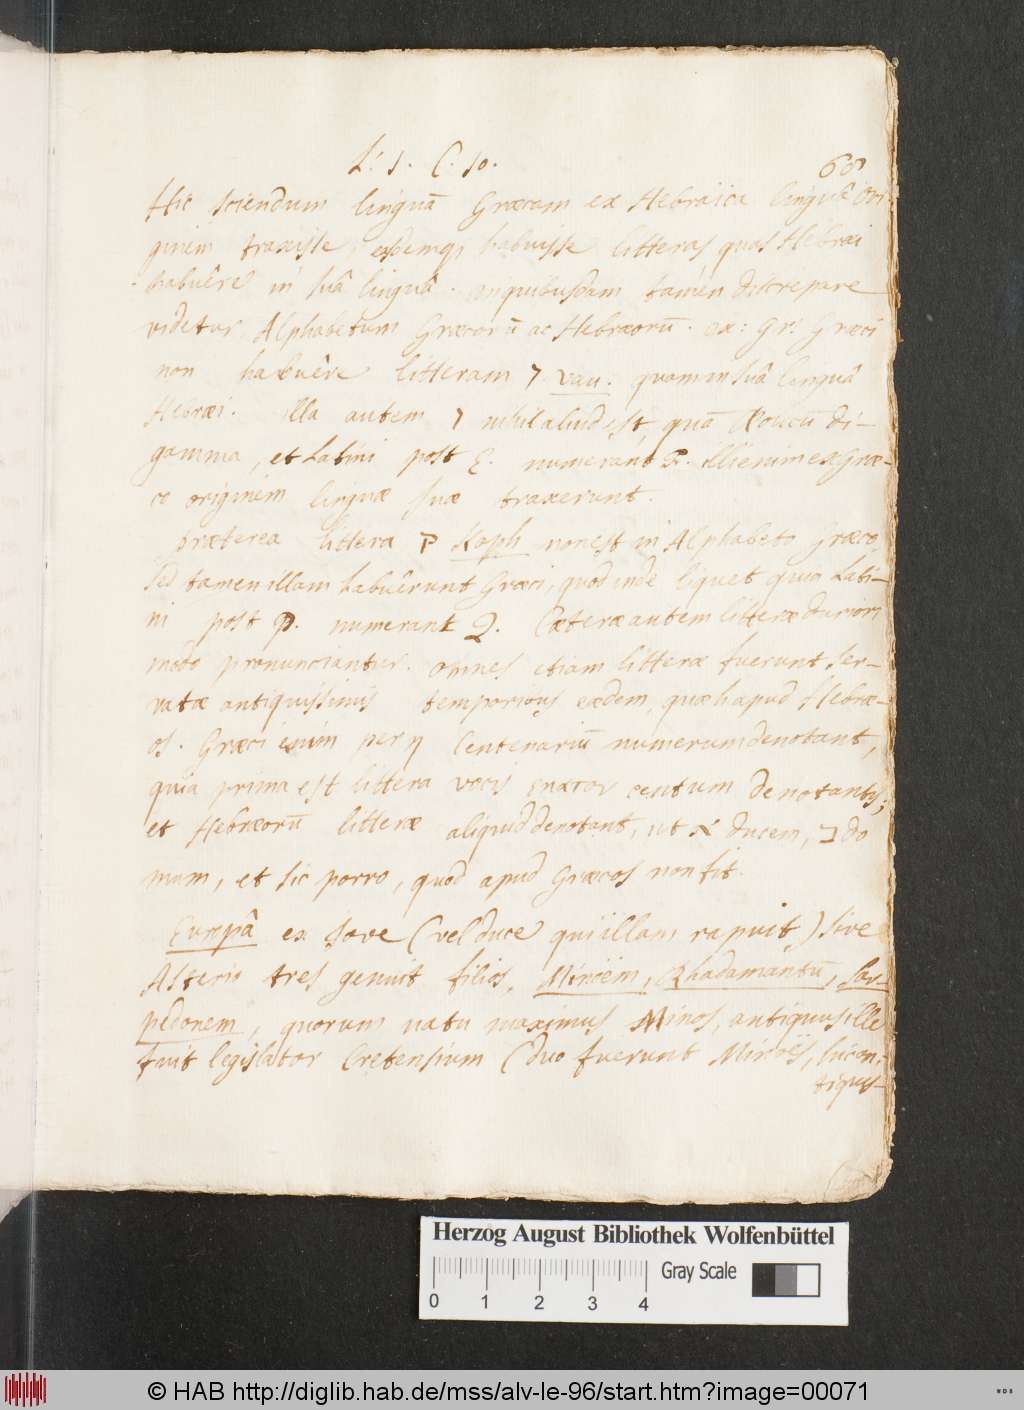 L. 1. C. 10. 68
Hic sciendum linguã Græcam ex Hebraica linguâ Ori
ginem traxisse, easdemq; habuisse litteras quas Hebræi
habuêre in suâ linguâ. in quibusdam tamen discrepare
videtur Alphabetum Græcorũ ac Hebræorũ. ex: gr: Græci
non habuêre litteram ו vau. quam in suâ linguâ
Hebræi. illa autem ו nihil aliud est, quã Æolicũ di-
gamma, et Latini post E. numerant F. illi enim ex Græ-
co originem linguæ suæ traxerunt.
præterea littera ק Koph non est in Alphabeto Græco,
sed tamen illam habuêrunt Græci, quod inde liquet quia Lati-
ni post P. numerant Q. Cæteræ autem litteræ duriori
modo pronunciantur. omnes etiam litteræ fuerunt ser-
vatæ antiquissimis temporibus eædem, quæ apud Hebræ-
os. Græci enim per η Centenariũ numerum denotant,
quia prima est littera vocis centum denotantis;
et Hebræorũ litteræ aliquid denotant, ut א ducem, ב do
mum, et sic porro, quod apud Græcos non fit.
Europâ ex Jove (vel duce qui illam rapuit) sive
Asterio tres genuit filios, Minoëm, Rhadamantũ, Sar-
pedonem, quorum natu maximus Minos, antiquus ille
fuit legislator Cretensium (duo fuerunt Minoës,
tiquis-
Herzog August Bibliothek Wolfenbüttel
Gray Scale
0 1 2 3 4
© HAB http://diglib.hab.de/mss/alv-le-96/start.htm?image=00071